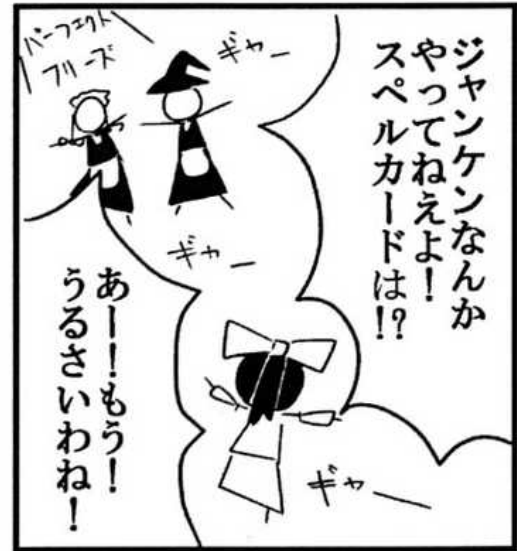 ジャンケンなんか
やってねえよ！
スペルカードは!?
ギャー
パーフェクト
フリーズ
ギャー
あー！もう！
うるさいわね！
ギャー